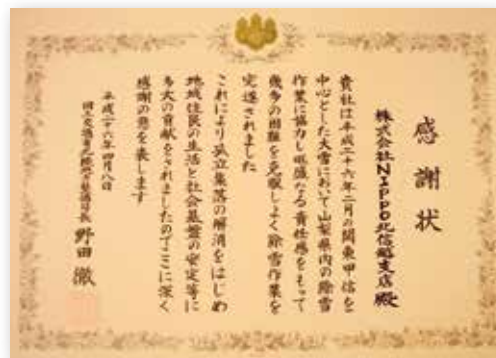 感謝状
株式会社NIPPO北信越支店 殿
貴社は平成二十六年二月の関東甲信を
中心とした大雪において山梨県内の除雪
作業に協力し旺盛なる責任感をもって
幾多の困難を克服しよく除雪作業を
完遂されました
これにより孤立集落の解消をはじめ
地域住民の生活と社会基盤の安定等に
多大の貢献をされましたのでここに深く
感謝の意を表します
平成二十六年四月八日
国土交通省北陸地方整備局長 野田 徹